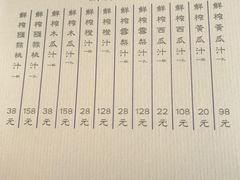 鮮榨黃瓜汁 98元
鮮榨黃瓜汁 20元
鮮榨西瓜汁 108元
鮮榨西瓜汁 22元
鮮榨雪梨汁 128元
鮮榨雪梨汁 28元
鮮榨橙汁 128元
鮮榨橙汁 28元
鮮榨木瓜汁 158元
鮮榨木瓜汁 38元
鮮榨獼猴桃汁 158元
鮮榨獼猴桃汁 38元